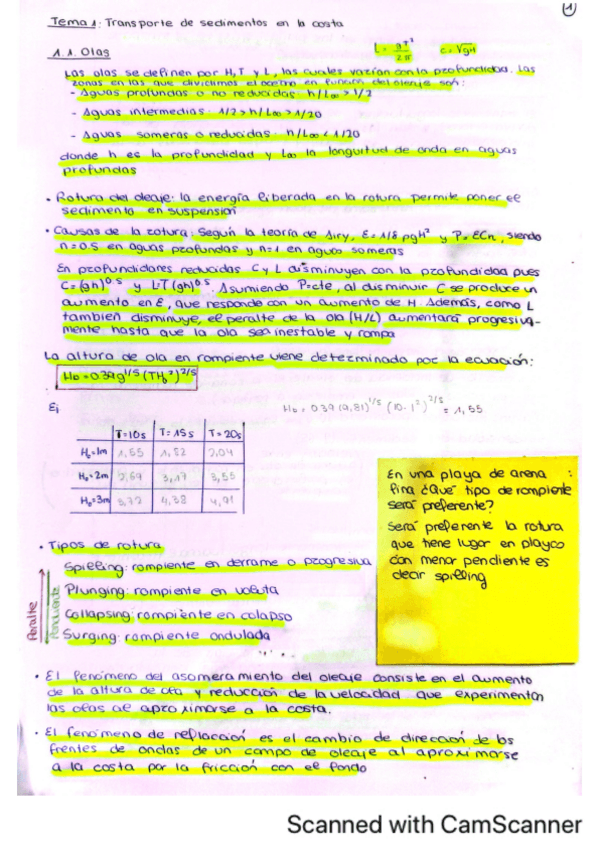 1
Tema 1: Transporte de sedimentos en la costa
1.1. Olas
L = gT²/2π   c = √gH
Las olas se definen por H, T y L, las cuales varían con la profundidad. Las
zonas en las que dividimos el océano en función del oleaje son:
- Aguas profundas o no reducidas: h/L∞ > 1/2
- Aguas intermedias: 1/2 > h/L∞ > 1/20
- Aguas someras o reducidas: h/L∞ < 1/20
donde h es la profundidad y L∞ la longuitud de onda en aguas
profundas
• Rotura del oleaje: la energía liberada en la rotura permite poner el
sedimento en suspensión
• Causas de la rotura: Según la teoría de Airy, E = 1/8 ρgH² y P = ECn, siendo
n=0.5 en aguas profundas y n=1 en aguas someras
En profundidades reducidas C y L disminuyen con la profundidad pues
C = (gh)^0.5 y L=T (gh)^0.5. Asumiendo P=cte, al disminuir C se produce un
aumento en E, que responde con un aumento de H. Además, como L
también disminuye, el peralte de la ola (H/L) aumentará progresiva-
mente hasta que la ola sea inestable y rompa
La altura de ola en rompiente viene determinado por la ecuación:
Hb = 0.39 g^1/5 (TH₀²)^2/5
Ej
Hb = 0.39 (9,81)^1/5 (10·1²)^2/5 = 1,55
T=10s T=15s T=20s
H₀=1m 1,55 1,82 2,04
H₀=2m 2,69 3,17 3,55
H₀=3m 3,72 4,38 4,91
En una playa de arena
fina ¿Qué tipo de rompiente
será preferente?
Será preferente la rotura
que tiene lugar en playas
con menor pendiente es
decir spilling
• Tipos de rotura
Spilling: rompiente en derrame o progresiva
Plunging: rompiente en voluta
Collapsing: rompiente en colapso
Surging: rompiente ondulada
Peralte
Pendiente
• El fenómeno del asomeramiento del oleaje consiste en el aumento
de la altura de ola y reducción de la velocidad que experimentan
las olas al aproximarse a la costa.
• El fenómeno de reflación es el cambio de dirección de los
frentes de ondas de un campo de oleaje al aproximarse
a la costa por la fricción con el fondo
Scanned with CamScanner